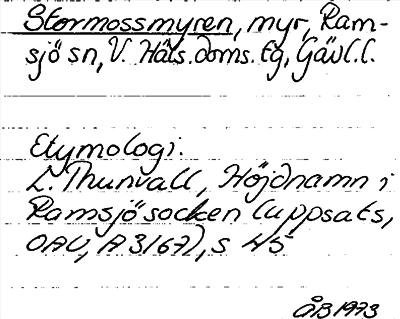 Stormossmyren, myr, Ram-
sjö sn, V. Häls. doms. tg, Gävl. l.
Etymologi:
L. Thunvall, Höjdnamn i
Ramsjö socken (uppsats,
OAU, A 3167), s 45
ÅB 1973